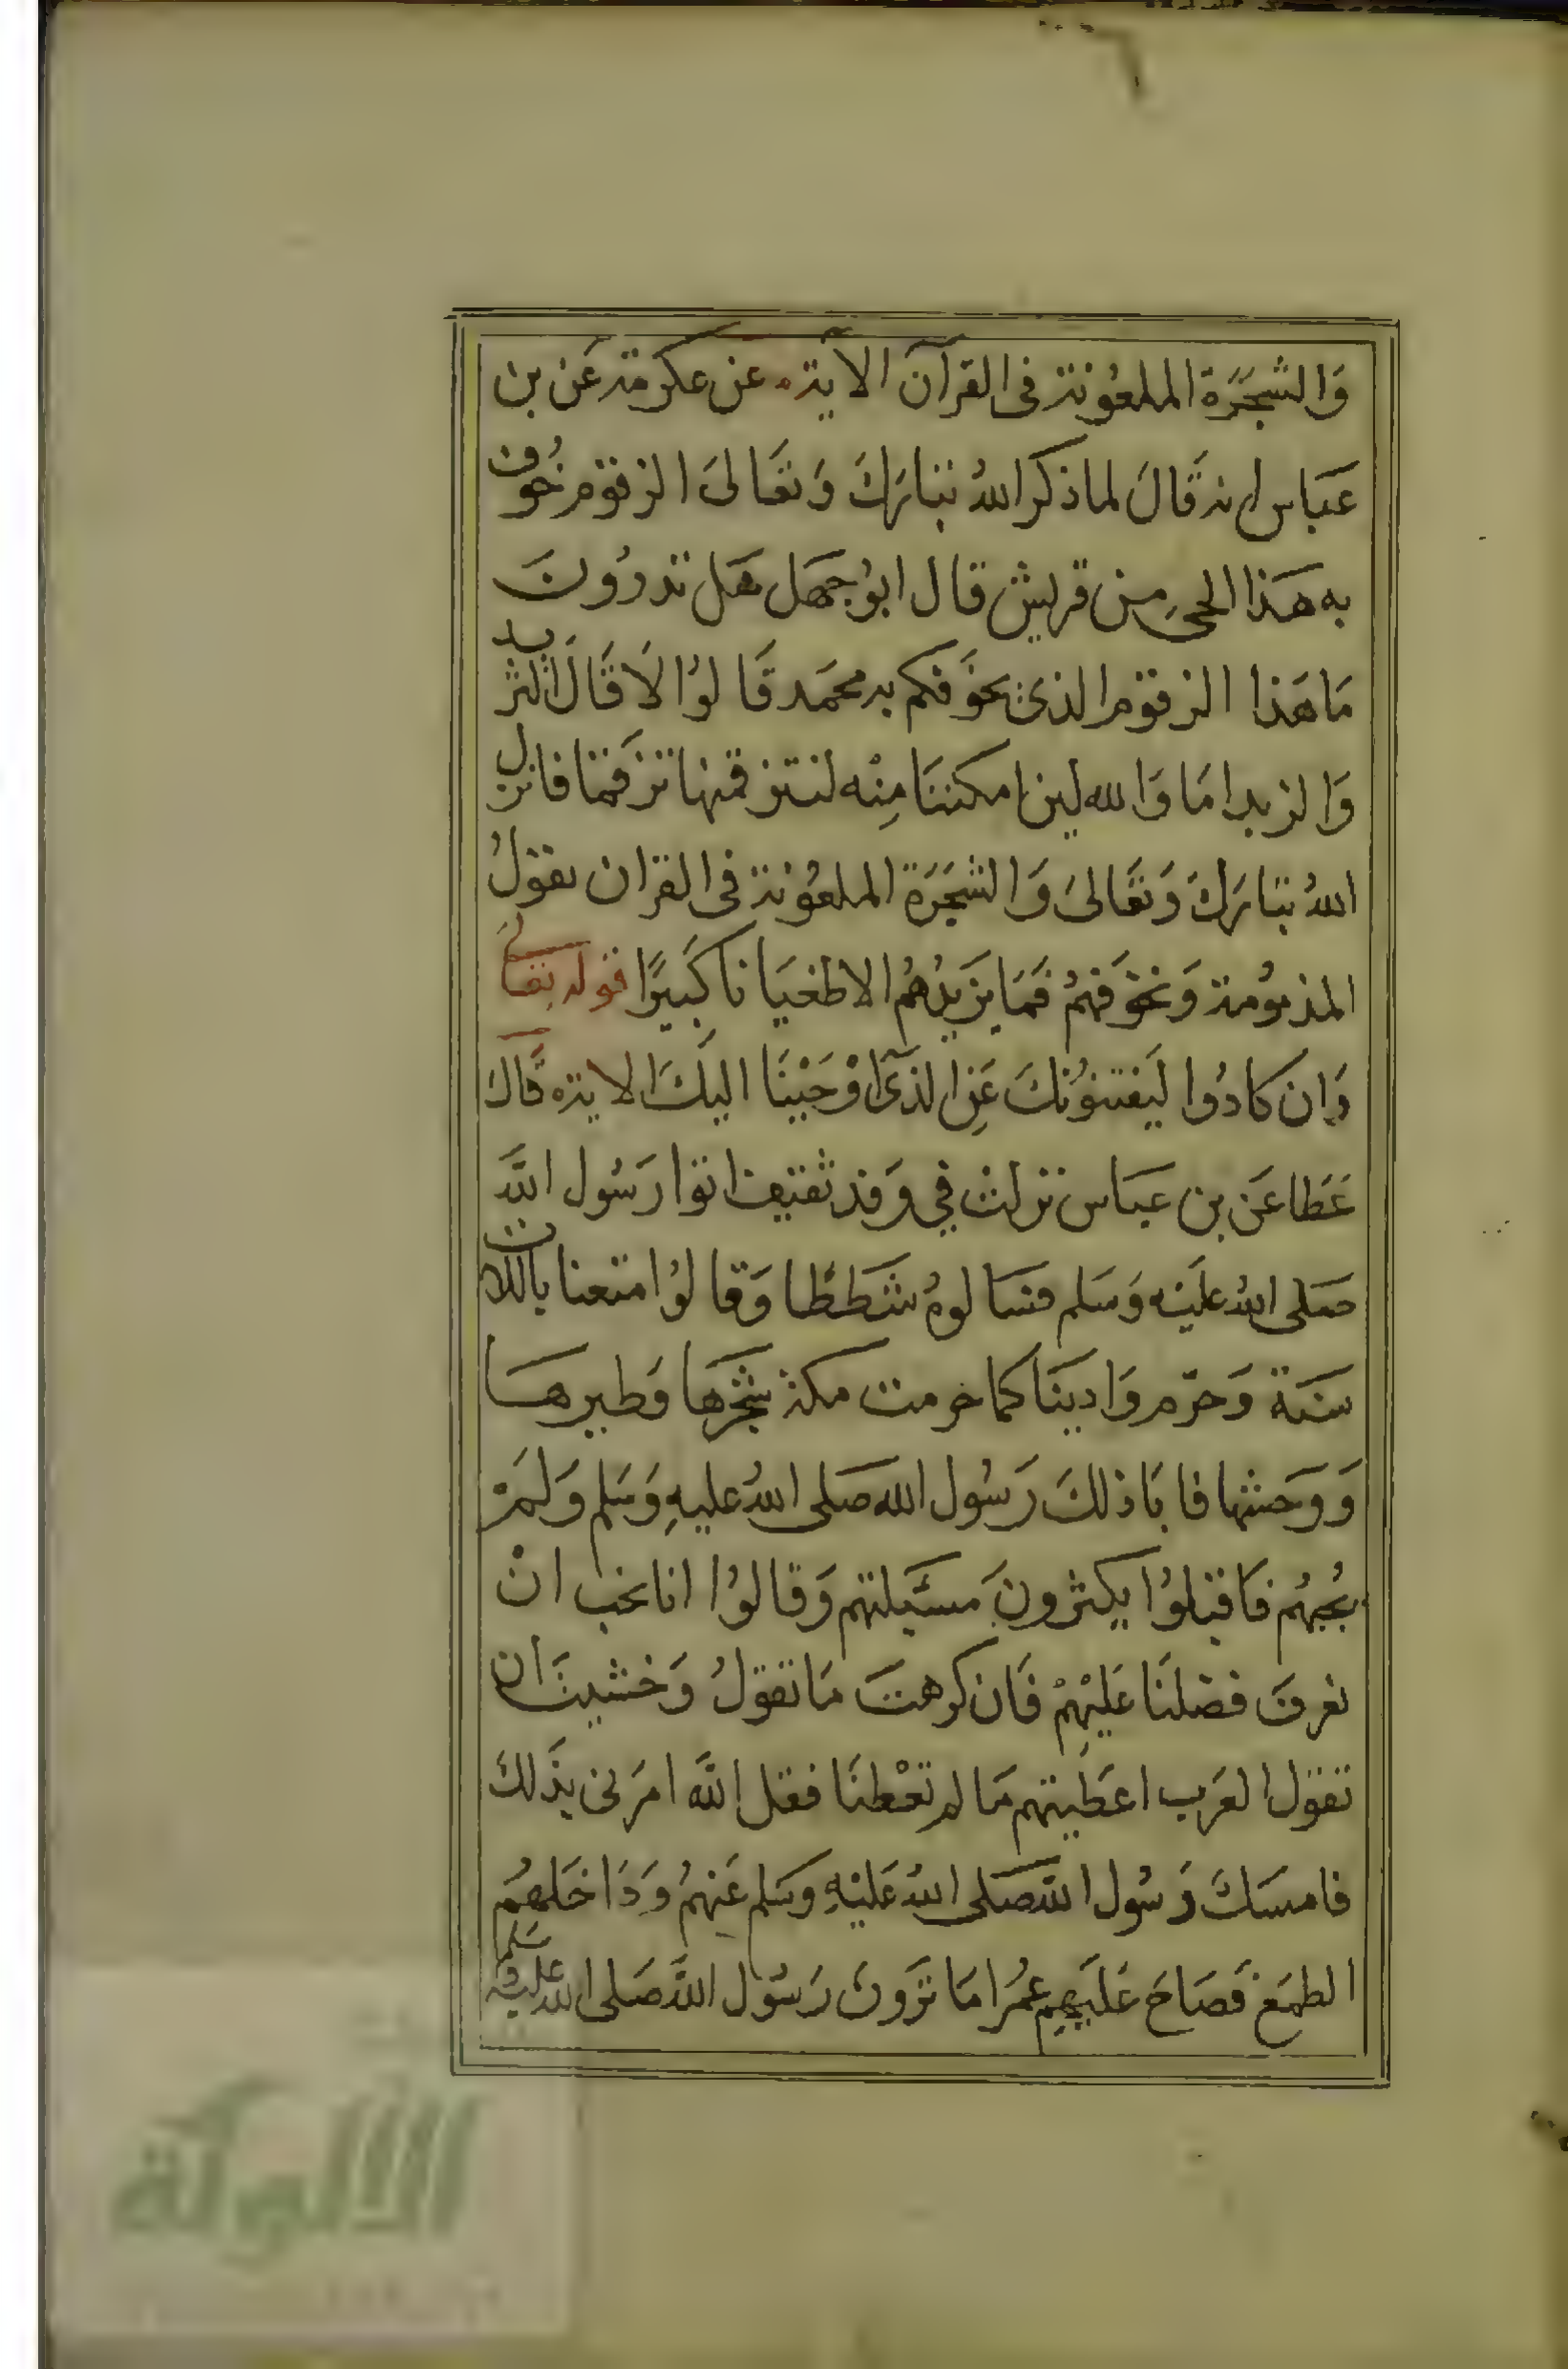 وَالشَجَرَة الملعُونة فى القرآن الآية عن عكرمة عَن بن
عَبَاس انه قَالَ لما ذكر اللهُ تبارَكَ وَتعَالىَ الزقوم خُوف
به هَذا الحىِ من قريش قال ابوُ جهَل هَل تدرُونَ
مَا هَذا الزقوم الذى يخوَفكم به محمَد قَالوُا لَا قَالَ الثريد
وَالزبد امَا وَالله لين امكننَا مِنْه لنتزقمنها تزقمَا فانزل
اللهُ تبَارَكَ وَتعَالىَ وَالشجَرَة الملعوُنة فى القران يقوَلُ
المذمُومة وَنخوَفهمُ فَمَا يزَيدُهُم الا طغيَانا كَبِيرًا قوله تعَالى
وَان كادُوا لَيفتنوُنكَ عَنِ الذىَ اوْحَيْنَا اليكَ الاية قَالَ
عَطا عَن بن عبَاس نزلت في وَفد ثقيف اتوا رَسُول اللَّه
صَلى اللهُ عليْه وَسَلم فسَالوهُ شَططًا وَقالوُا متعنا باللات
سَنَة وَحرّم وَادينَا كما حرمت مكة شجَرَهَا وَطيرهَا
وَوَحشها فابَا ذلكَ رَسُول الله صَلى اللهُ عليهِ وَسَلم وَلَمْ
يجُبهُم فَاقبلوُا يكثرونَ مسَئلتهم وَقالوُا انا نحب انْ
نعرف فضلنَا عَليْهِمْ فَان كرهتَ مَا نقوَلُ وَخشيتَ ان
تقوَل العرَب اعطَيتهم مَا لم تعْطنَا فقل اللَّه امرَنى بذَلكَ
فامسَكَ رَسُول اللَّه صَلى اللهُ عَليْهِ وسَلم عَنهمُ وَدَاخَلهُم
الطمَع فَصَاحَ عَليَهِم عمُر امَا ترَونَ رَسوُل اللَّه صَلى الله عليه وسَلم
الألوكة